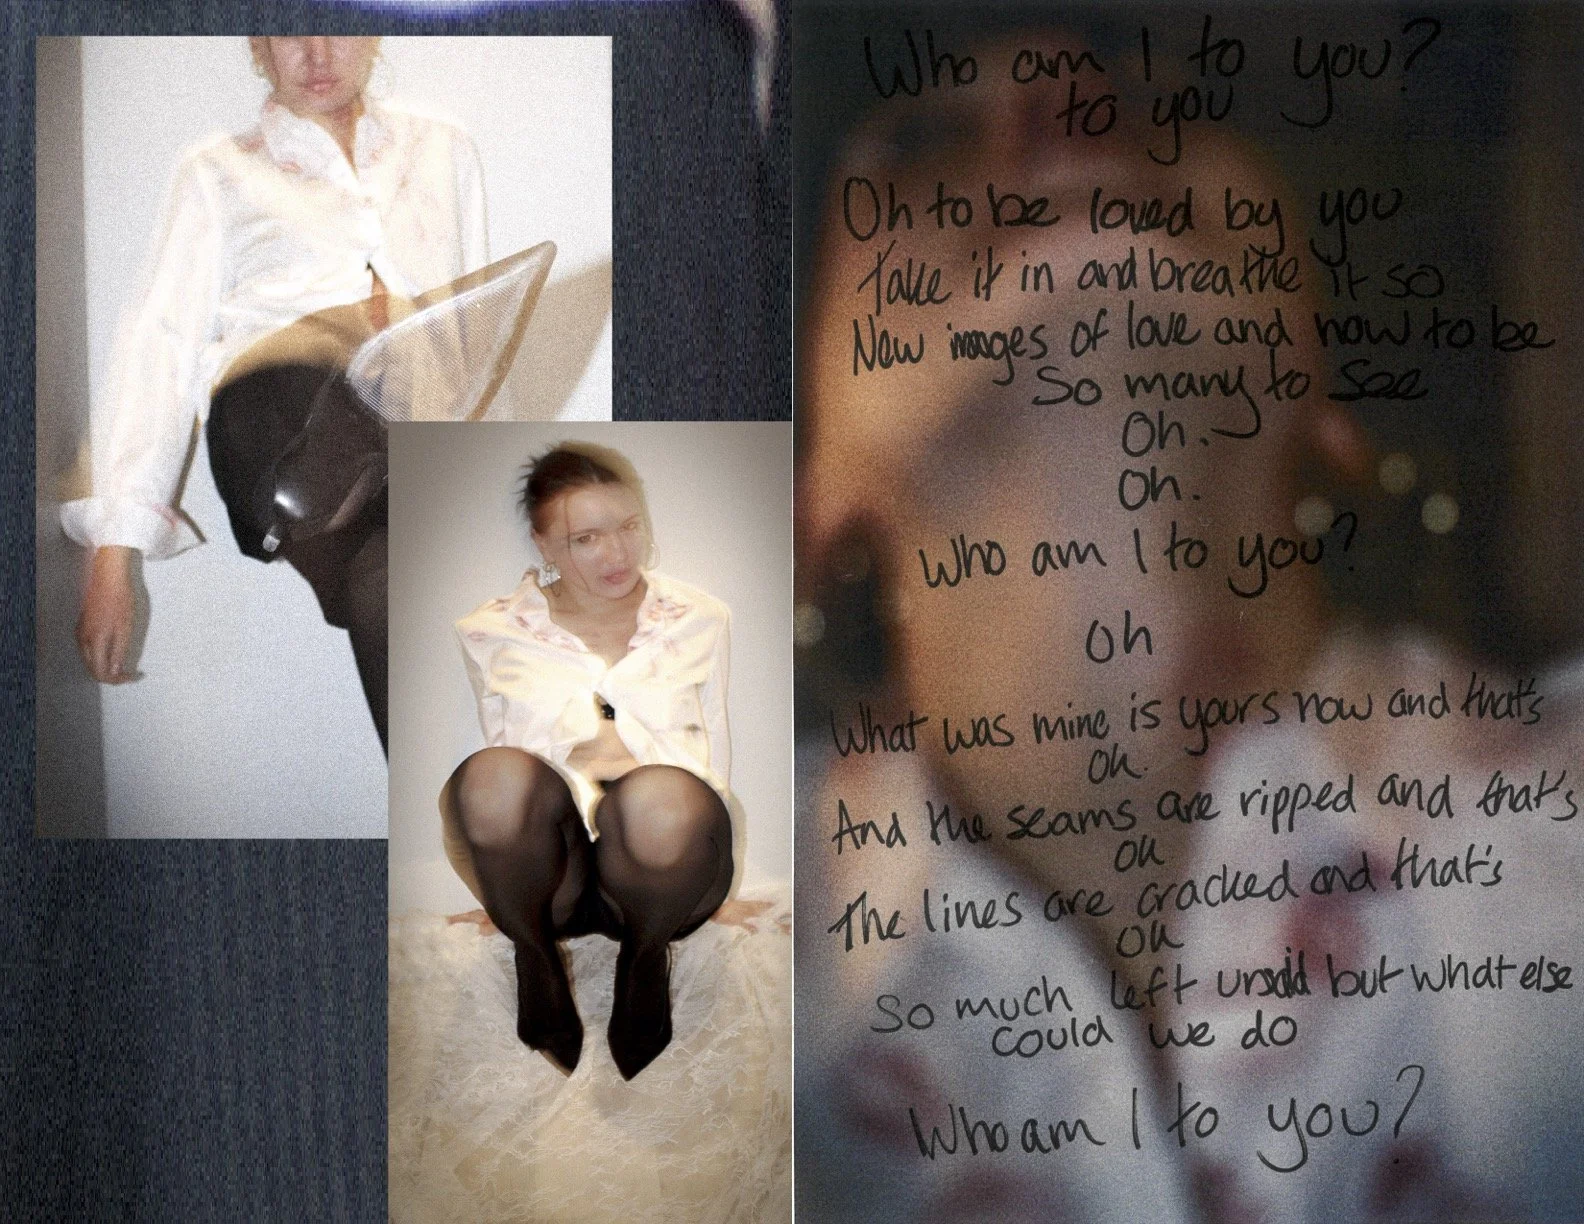 Who am I to you?
to you
Oh to be loved by you
Take it in and breathe it so
New images of love and how to be
So many to see
Oh.
Oh.
Who am I to you?
Oh
What was mine is yours now and that's
ok.
And the seams are ripped and that's
ok
The lines are cracked and that's
ok
So much left unsaid but what else
could we do
Who am I to you?